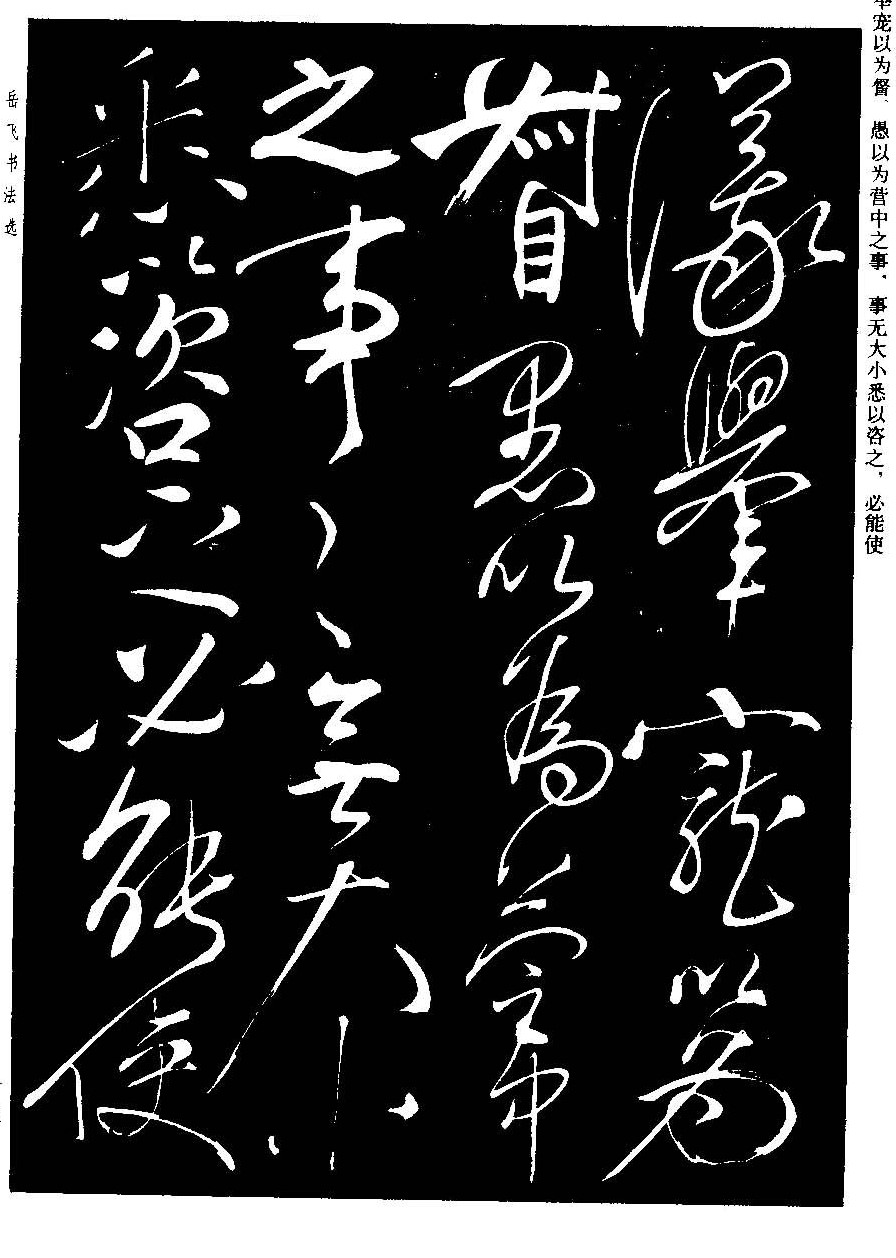 举宠以为督、愚以为营中之事、事无大小悉以咨之，必能使
議舉寵以为
督愚以為營中
之事〻無大小
悉以咨之必能使
岳飞书法选